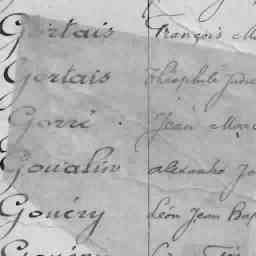 Gertais François Ma
Gertais Théophile Jules
Gorré Jean Marie
Goualin Alexandre Jo
Gouéry Léon Jean Bap